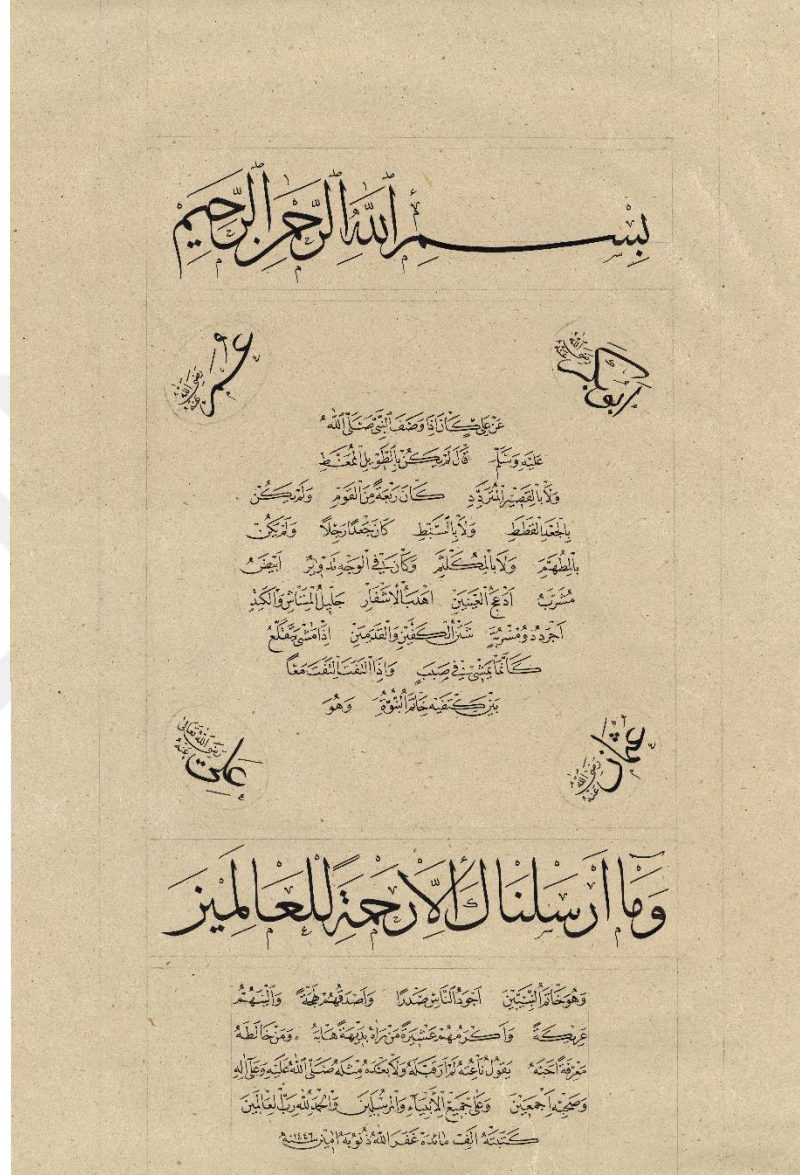 بِسْمِ اللّٰهِ الرَّحْمٰنِ الرَّحِيمِ
ابوبكر رضى الله عنه
عمر رضى الله عنه
عَنْ عَلِيٍّ كَانَ اِذَا وَصَفَ النَّبِيَّ صَلَّى اللّٰهُ
عَلَيْهِ وَسَلَّمَ قَالَ لَمْ يَكُنْ بِالطَّوِيلِ الْمُمَغَّطِ
وَلَا بِالْقَصِيرِ الْمُتَرَدِّدِ كَانَ رَبْعَةً مِنَ الْقَوْمِ وَلَمْ يَكُنْ
بِالْجَعْدِ الْقَطَطِ وَلَا بِالسَّبْطِ كَانَ جَعْدًا رَجِلًا وَلَمْ يَكُنْ
بِالْمُطَهَّمِ وَلَا بِالْمُكَلْثَمِ وَكَانَ فِي الْوَجْهِ تَدْوِيرٌ اَبْيَضُ
مُشْرَبٌ اَدْعَجُ الْعَيْنَيْنِ اَهْدَبُ الْاَشْفَارِ جَلِيلُ الْمُشَاشِ وَالْكَتَدِ
اَجْرَدُ ذُو مَسْرُبَةٍ شَثْنُ الْكَفَّيْنِ وَالْقَدَمَيْنِ اِذَا مَشٰى يَتَقَلَّعُ
كَاَنَّمَا يَمْشِي فِي صَبَبٍ وَاِذَا الْتَفَتَ الْتَفَتَ مَعًا
بَيْنَ كَتِفَيْهِ خَاتَمُ النُّبُوَّةِ وَهُوَ
عثمان رضى الله عنه
على رضى الله تعالى عنه
وَمَا اَرْسَلْنَاكَ اِلَّا رَحْمَةً لِلْعَالَمِينَ
وَهُوَ خَاتَمُ النَّبِيِّينَ اَجْوَدُ النَّاسِ صَدْرًا وَاَصْدَقُهُمْ لَهْجَةً وَاَلْيَنُهُمْ
عَرِيكَةً وَاَكْرَمُهُمْ عَشِيرَةً مَنْ رَاٰهُ بَدِيهَةً هَابَهُ وَمَنْ خَالَطَهُ
مَعْرِفَةً اَحَبَّهُ يَقُولُ نَاعِتُهُ لَمْ اَرَ قَبْلَهُ وَلَا بَعْدَهُ مِثْلَهُ صَلَّى اللّٰهُ عَلَيْهِ وَعَلٰى اٰلِهِ
وَصَحْبِهِ اَجْمَعِينَ وَعَلٰى جَمِيعِ الْاَنْبِيَاءِ وَالْمُرْسَلِينَ وَالْحَمْدُ لِلّٰهِ رَبِّ الْعَالَمِينَ
كَتَبَتْهُ الف مائده غَفَرَ اللّٰهُ ذُنُوبَهَ اٰمِين سنه ١٤٤٦